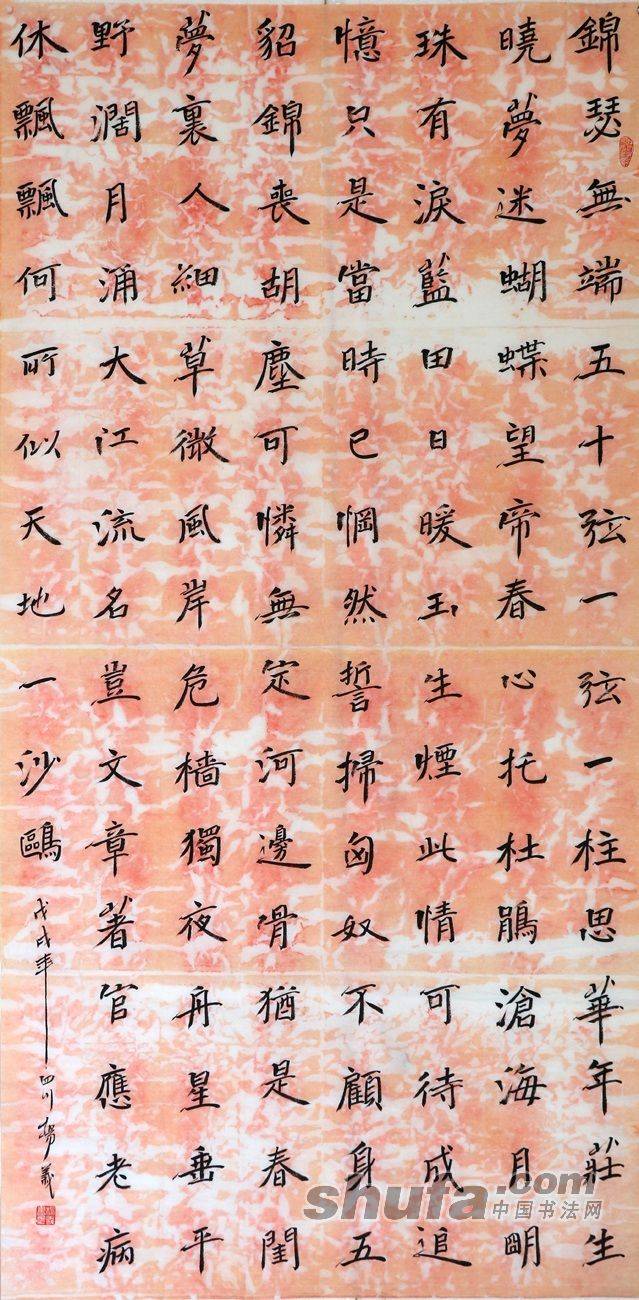 錦瑟無端五十弦一弦一柱思華年莊生
曉夢迷蝴蝶望帝春心托杜鵑滄海月明
珠有淚藍田日暖玉生煙此情可待成追
憶只是當時已惘然誓掃匈奴不顧身五
貂錦喪胡塵可憐無定河邊骨猶是春閨
夢裏人細草微風岸危檣獨夜舟星垂平
野濶月涌大江流名豈文章著官應老病
休飄飄何所似天地一沙鷗
戊戌年 四川楊義
shufa.com
中国书法网